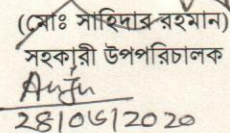 (মোঃ সাহিদার রহমান)
সহকারী উপপরিচালক
28/06/2020